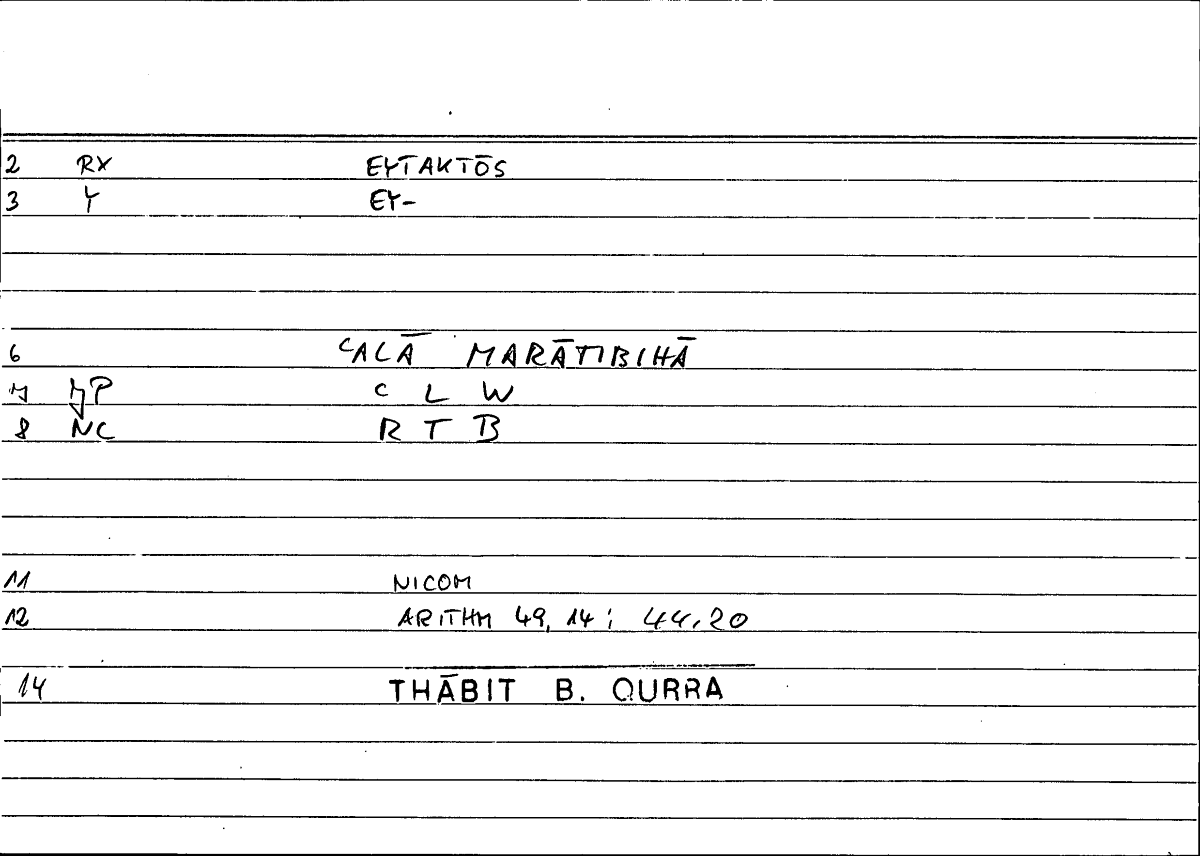 2 RX EYTAKTŌS
3 Y EY-
6 ʿALĀ MARĀTIBIHĀ
7 YP ʿ L W
8 NC R T B
11 NICOM
12 ARITHM 49, 14; 44,20
14 THĀBIT B. QURRA